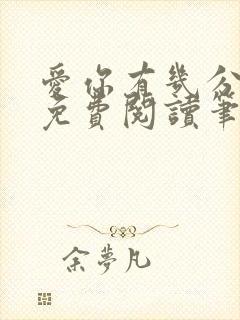 愛你有幾分
免費閱讀筆
余夢凡